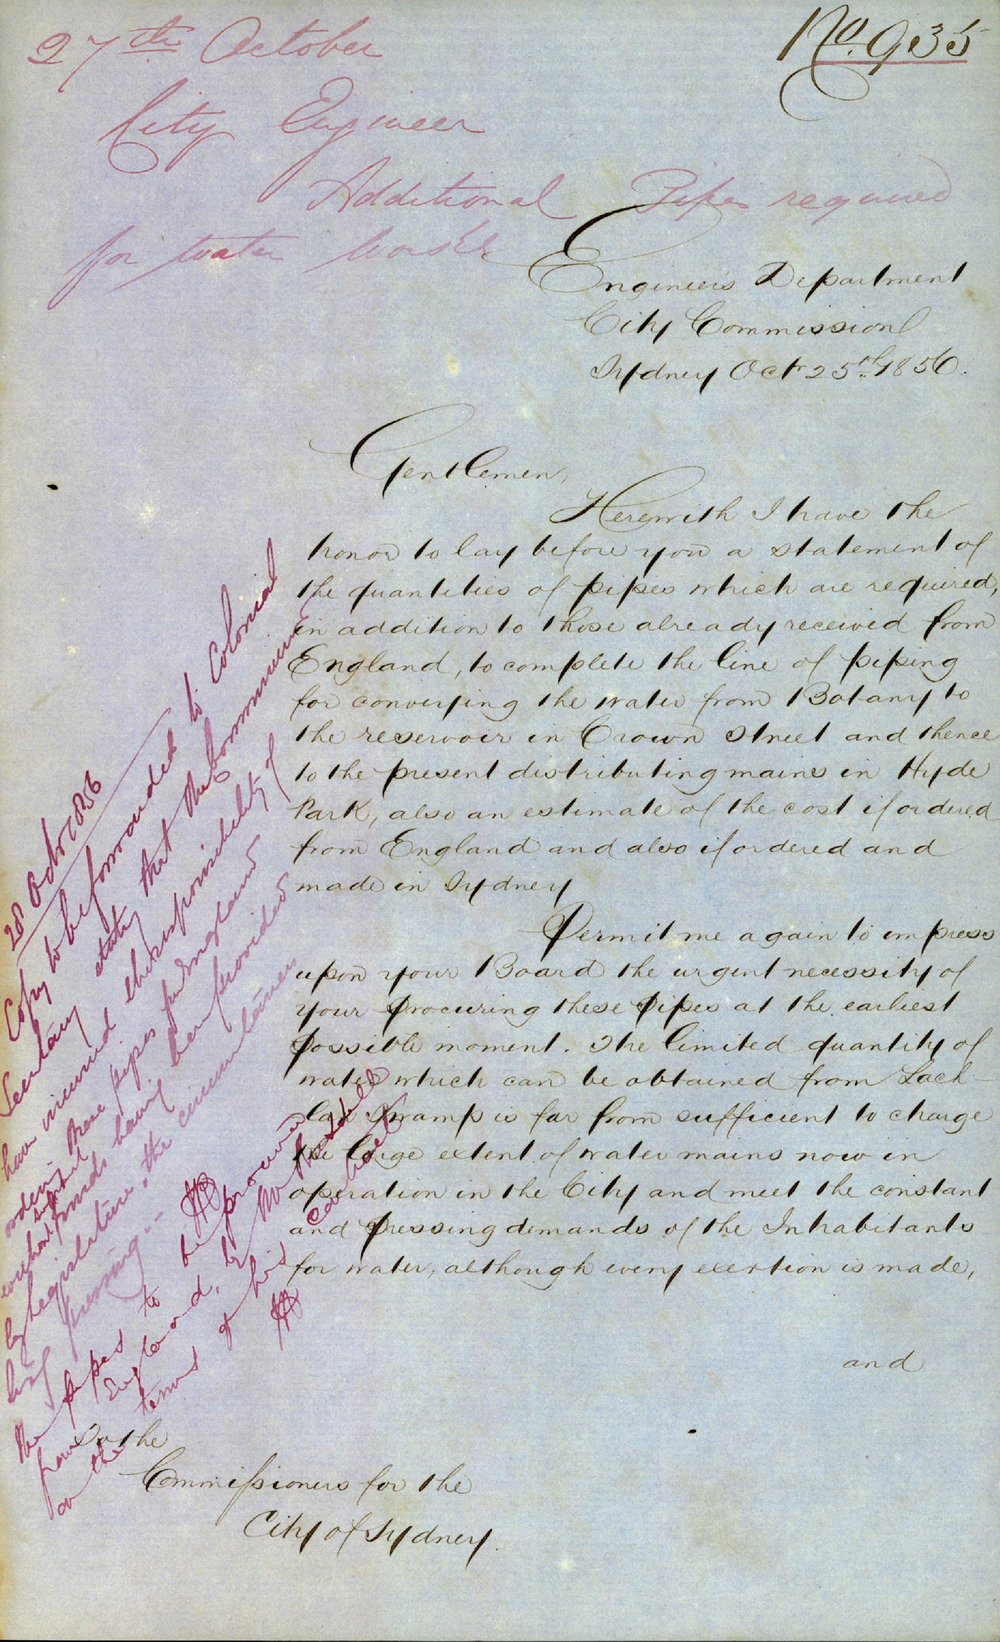 No. 935
27th October
City Engineer
Additional Pipes required
for water works
Engineer's Department
City Commission
Sydney Octr 25th 1856.
Gentlemen,
Herewith I have the
honor to lay before you a statement of
the quantities of pipes which are required,
in addition to those already received from
England, to complete the line of piping
for conveying the water from Botany to
the reservoir in Crown Street and thence
to the present distributing mains in Hyde
Park, also an estimate of the cost if ordered
from England and also if ordered and
made in Sydney
Permit me again to impress
upon your Board the urgent necessity of
your procuring these pipes at the earliest
possible moment. The limited quantity of
water which can be obtained from Lach-
lan Swamp is far from sufficient to charge
the large extent of water mains now in
operation in the City and meet the constant
and pressing demands of the Inhabitants
for water, although every exertion is made,
and
To the
Commissioners for the
City of Sydney.
28 Octbr 1856
Copy to be forwarded to Colonial
Secretary stating that the Commissioners
have incurred the responsibility of
ordering these pipes from England
without funds having been provided
by Legislature, the circumstances
being pressing.
The pipes to be procured
from England, by Mr
on the terms of his contract